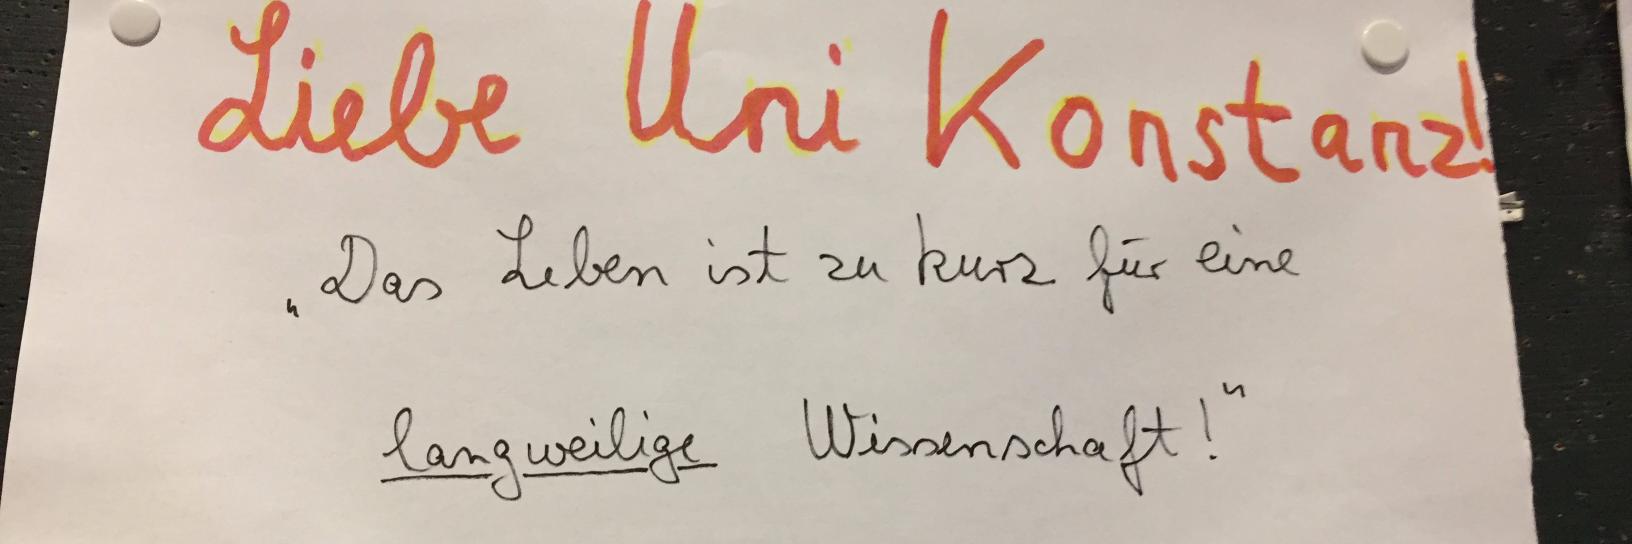 Liebe Uni Konstanz!
„Das Leben ist zu kurz für eine
langweilige Wissenschaft!“